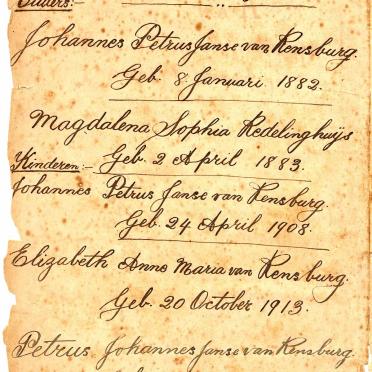 Ouders:-
Johannes Petrus Janse van Rensburg.
Geb. 8 Januari 1882.
Magdalena Sophia Redelinghuijs
Kinderen:- Geb. 2 April 1883.
Johannes Petrus Janse van Rensburg.
Geb. 24 April 1908.
Elizabeth Anna Maria van Rensburg.
Geb. 20 October 1913.
Petrus Johannes Janse van Rensburg.